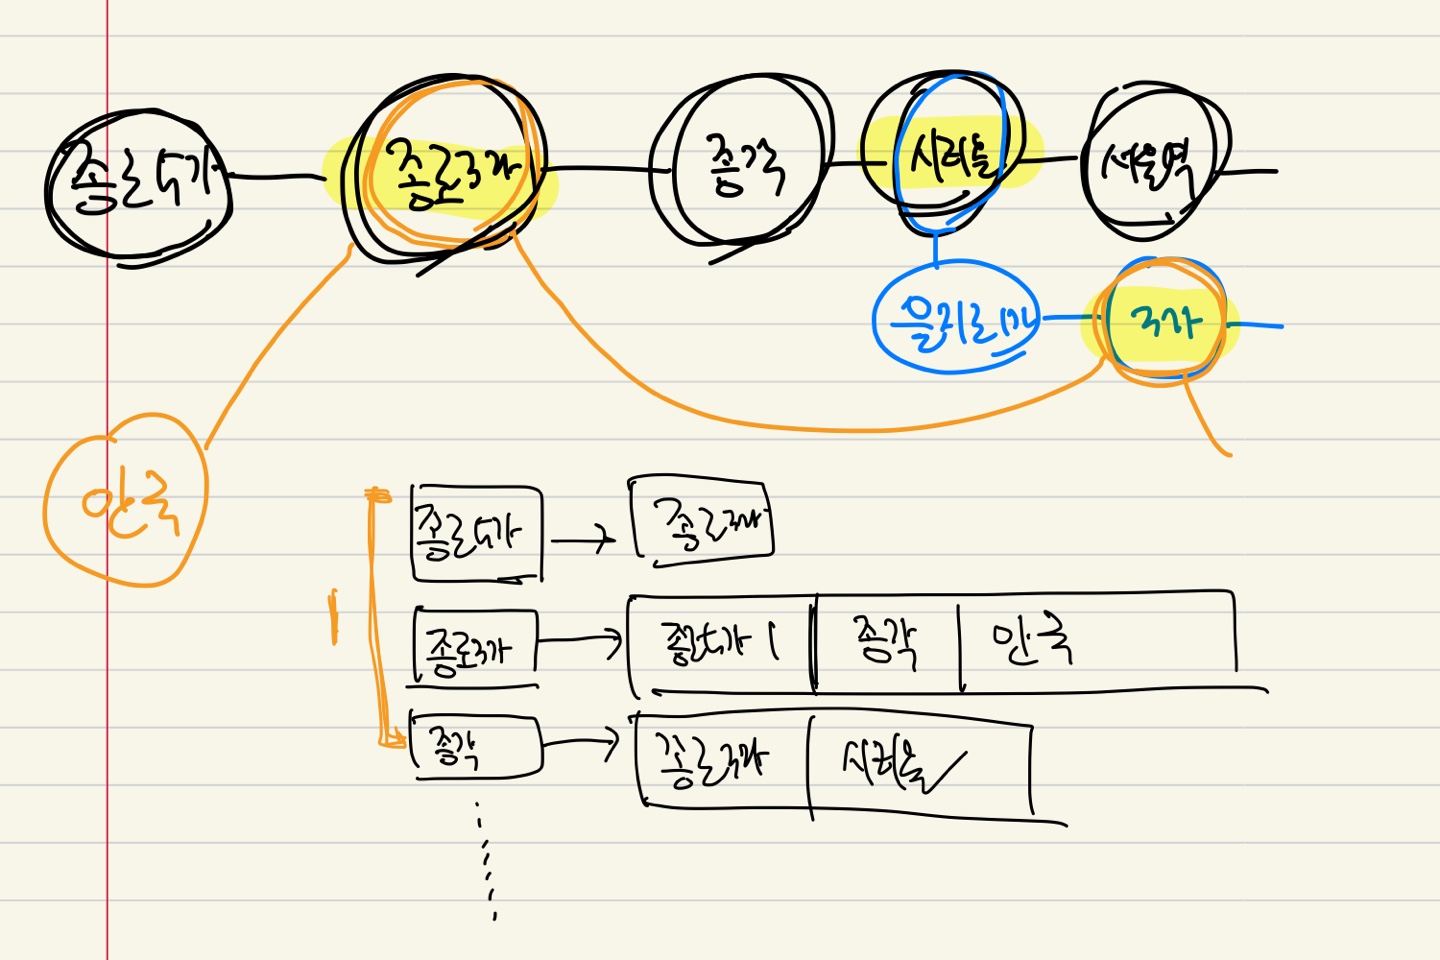 종로5가 종로3가 종각 시청 서울역
을지로1가 3가
안국
종로5가 종로3가
종로3가 종로5가 종각 안국
종각 종로3가